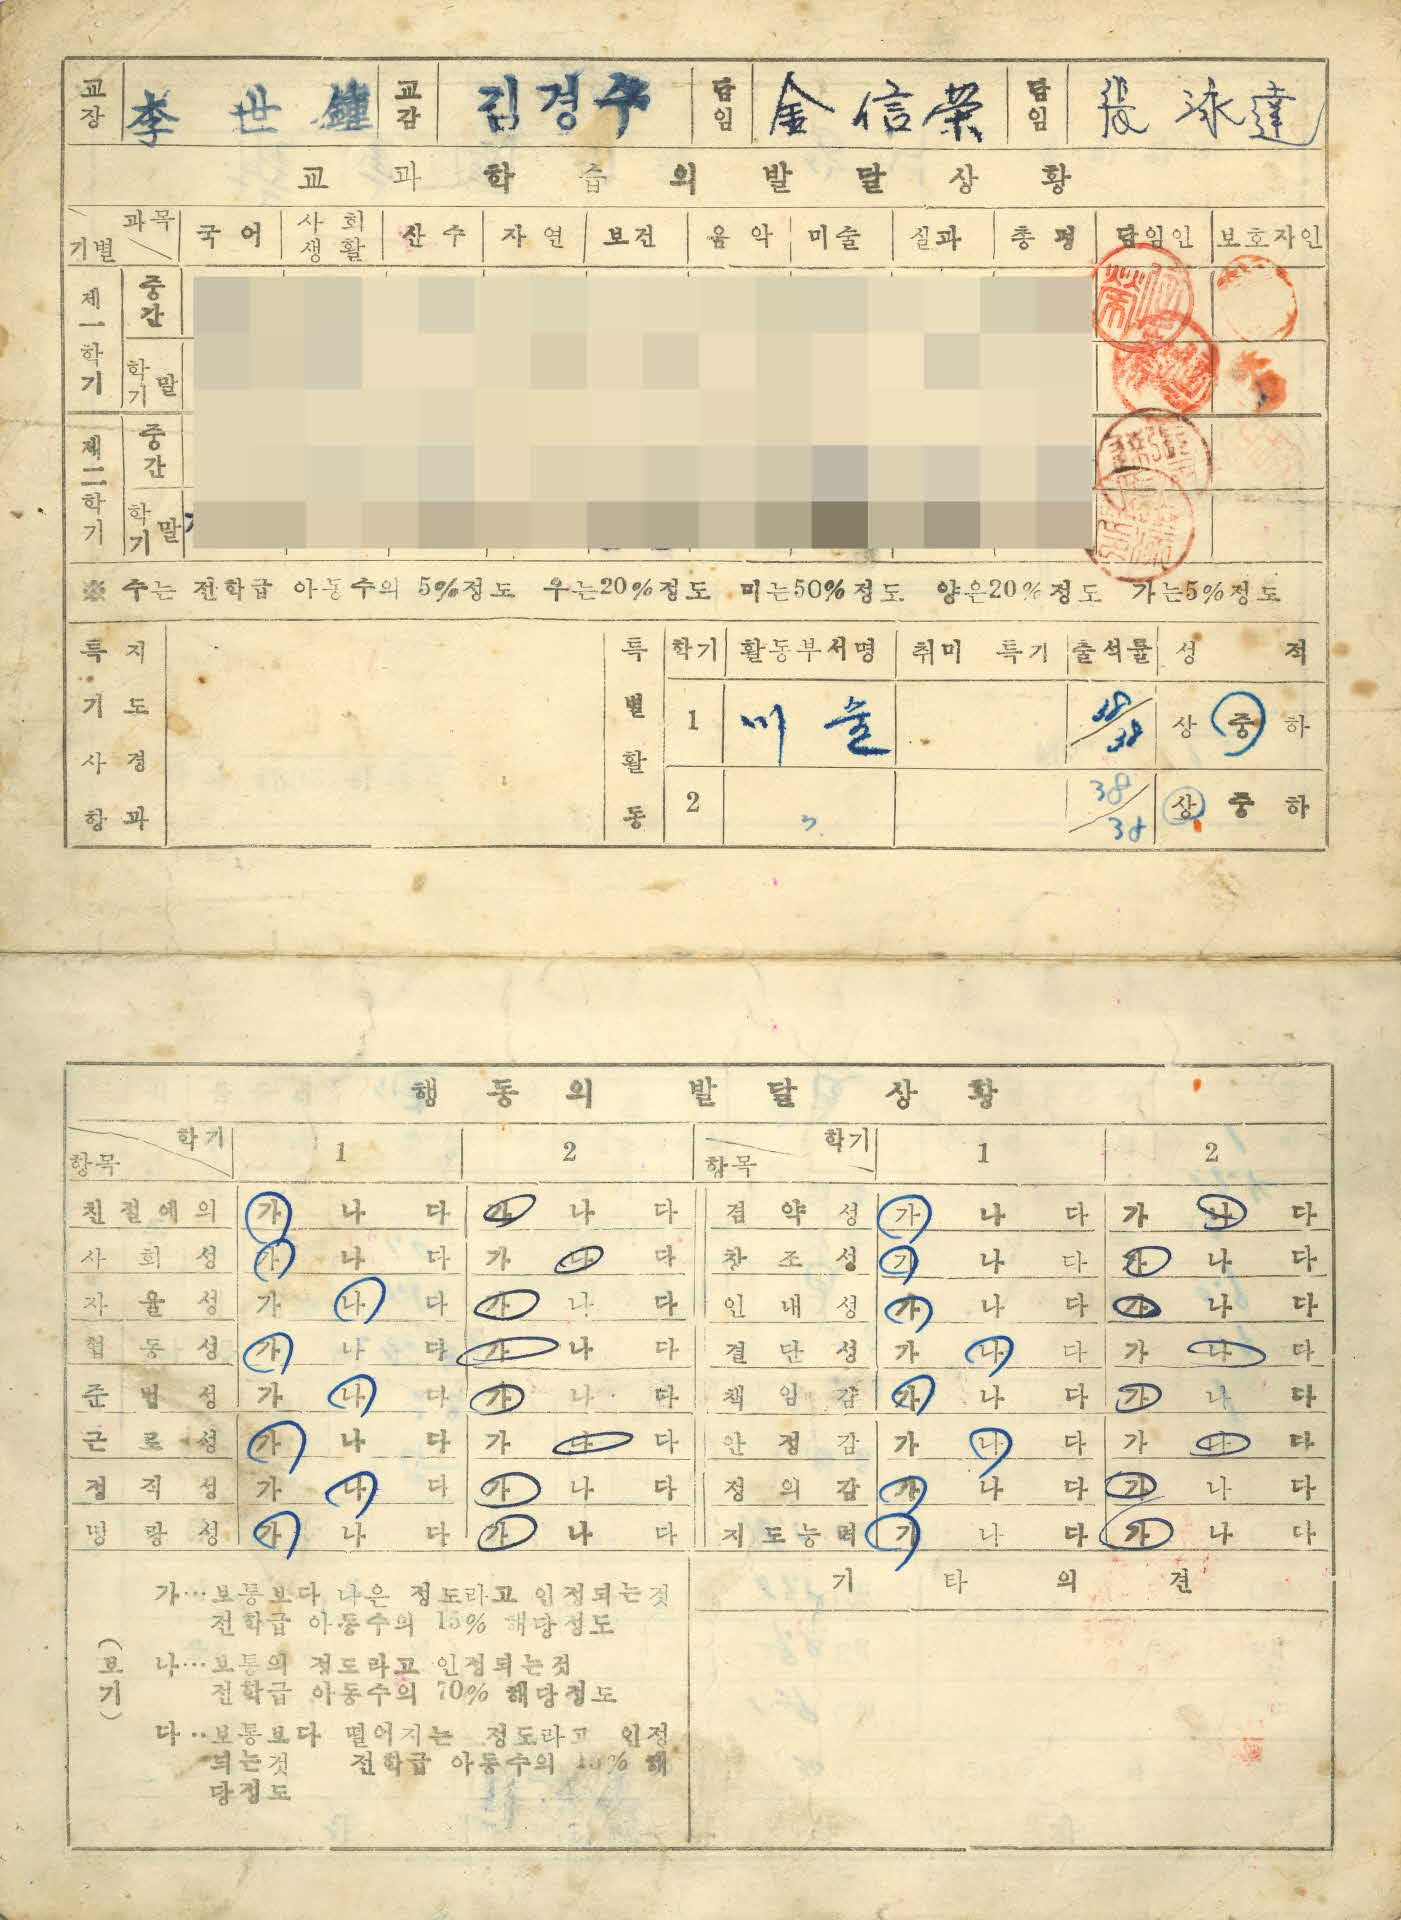 교장 李世鍾 교감 김경수 담임 金信榮 담임 張泳達
교과학습의 발달상황
과목 기별 국어 사회생활 산수 자연 보건 음악 미술 실과 총평 담임인 보호자인
제一학기 중간
학기말
제二학기 중간
학기말
※ 수는 전학급 아동수의 5%정도 우는20%정도 미는50%정도 양은20%정도 가는5%정도
특기사항과 지도경과 특별활동 학기 활동부서명 취미 특기 출석률 성적
1 미술 38/38 상 중 하
2 〃 38/38 상 중 하
행동의 발달상황
학기 항목 1 2 학기 항목 1 2
친절예의 가 나 다 가 나 다 검약성 가 나 다 가 나 다
사회성 가 나 다 가 나 다 창조성 가 나 다 가 나 다
자율성 가 나 다 가 나 다 인내성 가 나 다 가 나 다
협동성 가 나 다 가 나 다 결단성 가 나 다 가 나 다
준법성 가 나 다 가 나 다 책임감 가 나 다 가 나 다
근로성 가 나 다 가 나 다 안정감 가 나 다 가 나 다
정직성 가 나 다 가 나 다 정의감 가 나 다 가 나 다
명랑성 가 나 다 가 나 다 지도능력 가 나 다 가 나 다
기타의견
(보기)
가…보통보다 나은 정도라고 인정되는것
전학급 아동수의 15% 해당정도
나…보통의 정도라고 인정되는것
전학급 아동수의 70% 해당정도
다‥보통보다 떨어지는 정도라고 인정
되는것 전학급 아동수의 15% 해
당정도